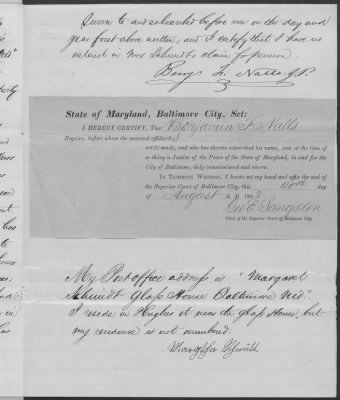 Sworn to and subscribed before me on this day and
year first above written, and I certify that I have no
interest in Mrs Schmidt's claim for pension.
Benj. F. Nalls, J.P.
State of Maryland, Baltimore City, Sct:
I HEREBY CERTIFY, That Benjamin F. Nalls
Esquire, before whom the annexed affidavits
were made, and who has thereto subscribed his name, was at the time of
so doing a Justice of the Peace of the State of Maryland, in and for the
City of Baltimore, duly commissioned and sworn.
IN TESTIMONY WHEREOF, I hereto set my hand and affix the seal of
the Superior Court of Baltimore City, this day
of August A. D. 186
Geo E Sangston
Clerk of the Superior Court of Baltimore City.
My Post office address is "Margaret
Schmidt Glass House Baltimore Md."
I reside in Hughes st. near the Glass House, but
my residence is not numbered.